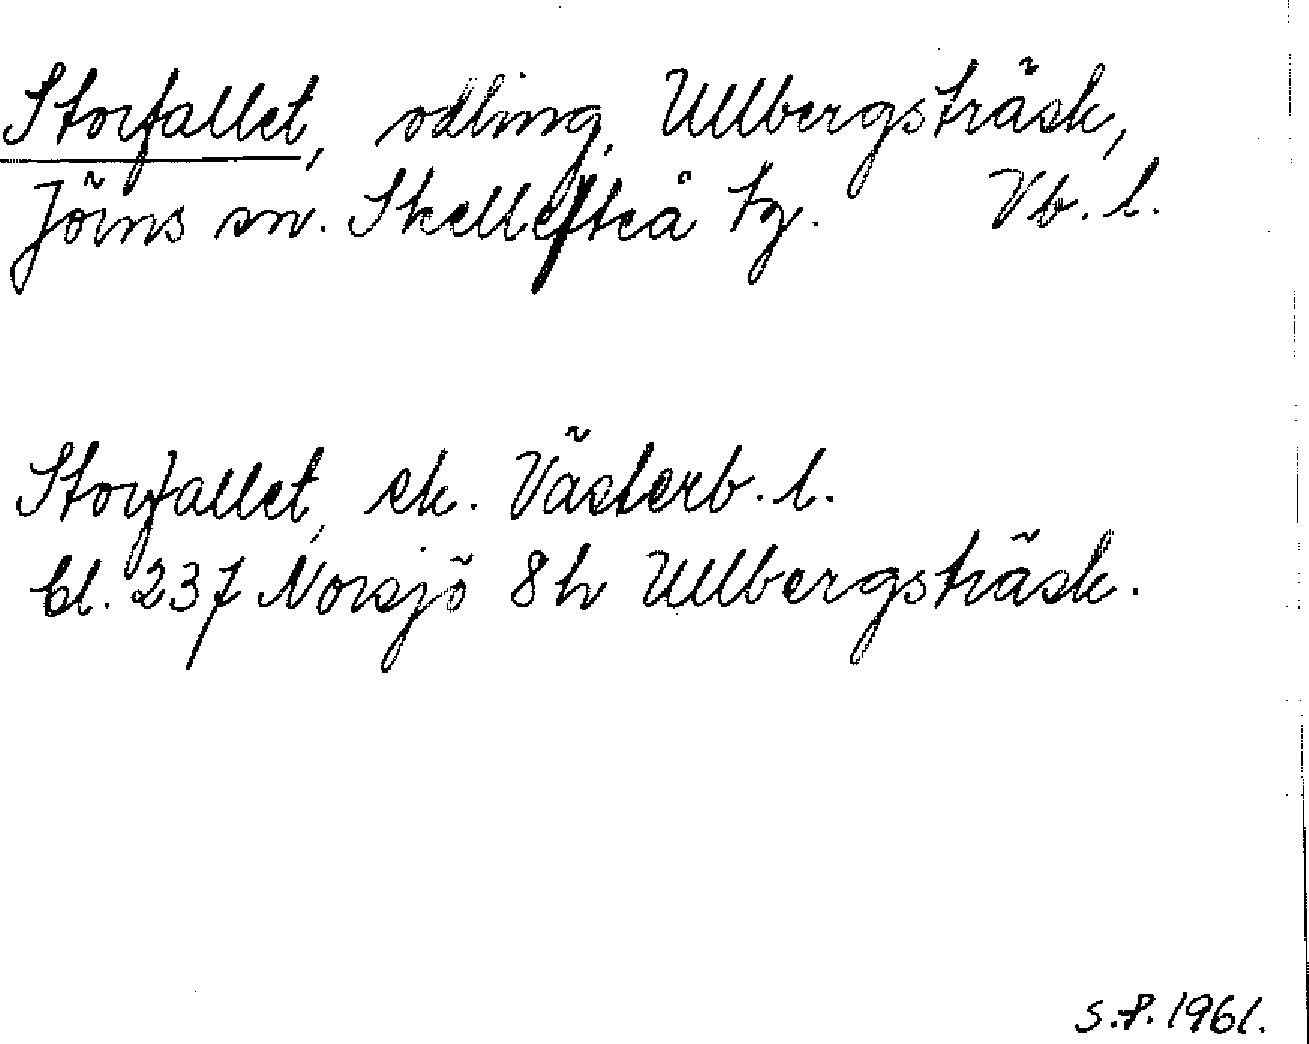 Storfallet, odling, Ullbergsträsk,
Jörns sn. Skellefteå tg. Vb. l.
Storfallet, ek. Västerb. l.
bl. 237 Norsjö 8h Ullbergsträsk.
S.P. 1961.